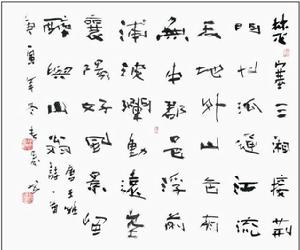 楚塞三湘接荆
門九派通江流
天地外山色有
無中郡邑浮前
浦波瀾動遠空
襄陽好風景留
醉與山翁
唐王維詩一首
庚寅年冬